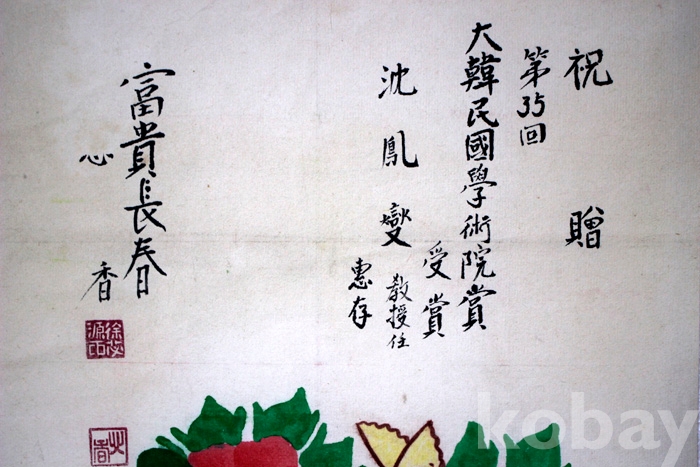 祝 贈
第35回
大韓民國學術院賞
受賞
沈鳳燮
教授任
惠存
富貴長春
心香
心香
kobay